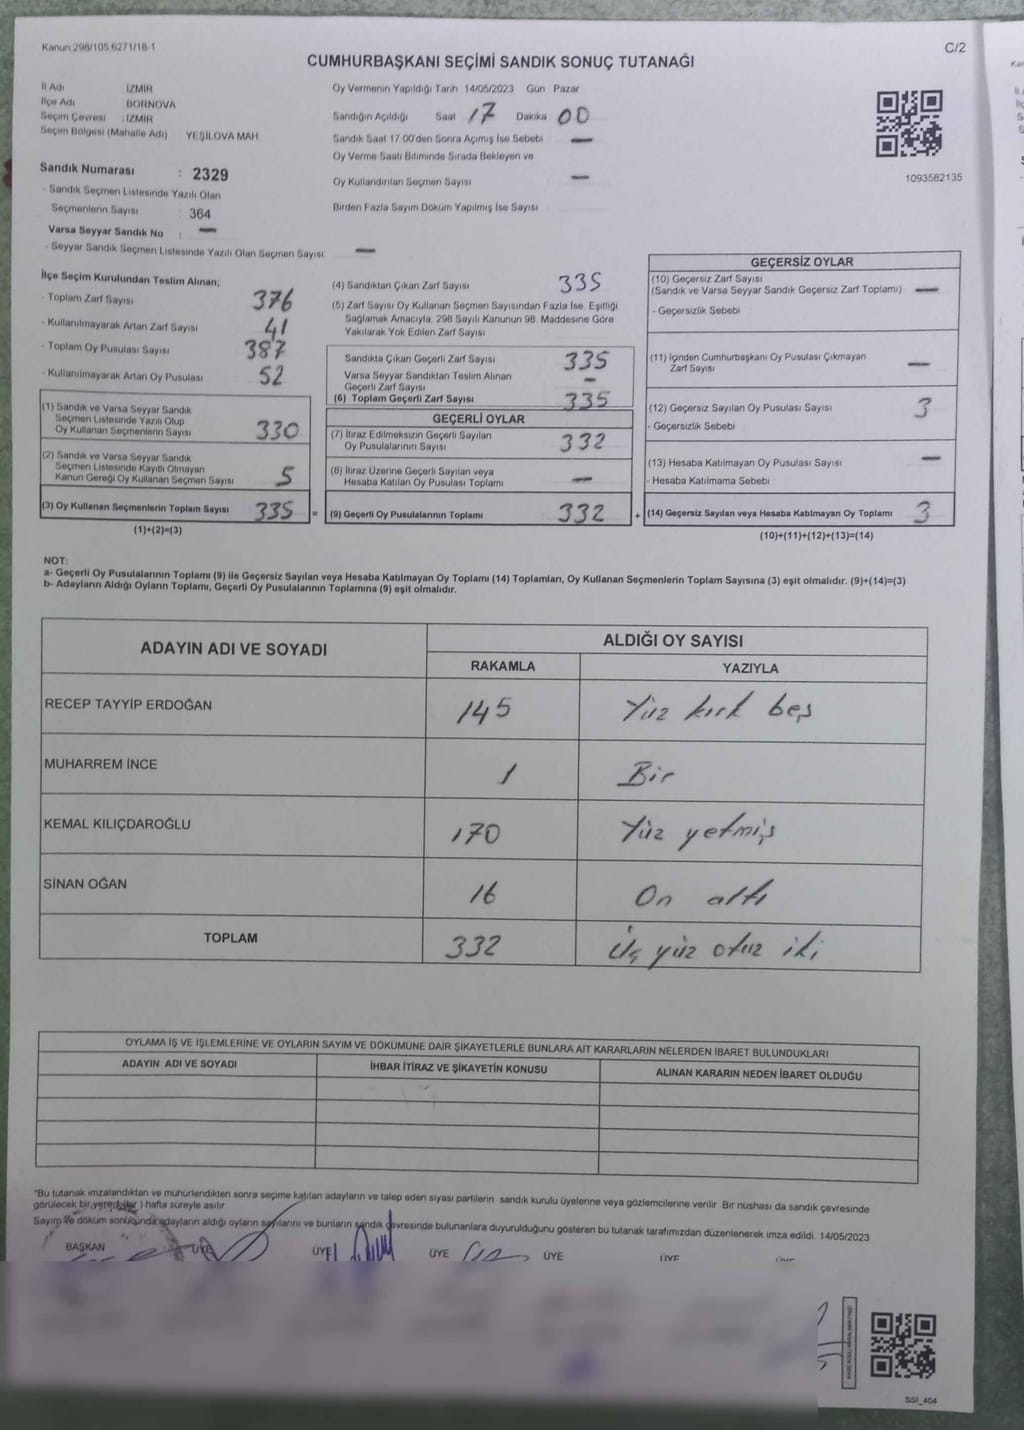 Kanun 298/105 6271/18-1
C/2
CUMHURBAŞKANI SEÇİMİ SANDIK SONUÇ TUTANAĞI
İl Adı İZMİR
İlçe Adı BORNOVA
Seçim Çevresi : İZMİR
Seçim Bölgesi (Mahalle Adı) YEŞİLOVA MAH
Sandık Numarası : 2329
- Sandık Seçmen Listesinde Yazılı Olan
Seçmenlerin Sayısı : 364
Varsa Seyyar Sandık No : —
- Seyyar Sandık Seçmen Listesinde Yazılı Olan Seçmen Sayısı —
Oy Vermenin Yapıldığı Tarih 14/05/2023 Gün Pazar
Sandığın Açıldığı Saat 17 Dakika 00
Sandık Saat 17:00'den Sonra Açımış İse Sebebi —
Oy Verme Saati Bitiminde Sırada Bekleyen ve
Oy Kullandırılan Seçmen Sayısı —
Birden Fazla Sayım Döküm Yapılmış İse Sayısı
1093582135
İlçe Seçim Kurulundan Teslim Alınan;
- Toplam Zarf Sayısı 376
- Kullanılmayarak Artan Zarf Sayısı 41
- Toplam Oy Pusulası Sayısı 387
- Kullanılmayarak Artan Oy Pusulası 52
(1) Sandık ve Varsa Seyyar Sandık
Seçmen Listesinde Yazılı Olup
Oy Kullanan Seçmenlerin Sayısı 330
(2) Sandık ve Varsa Seyyar Sandık
Seçmen Listesinde Kayıtlı Olmayan
Kanun Gereği Oy Kullanan Seçmen Sayısı 5
(3) Oy Kullanan Seçmenlerin Toplam Sayısı 335 =
(1)+(2)=(3)
(4) Sandıktan Çıkan Zarf Sayısı 335
(5) Zarf Sayısı Oy Kullanan Seçmen Sayısından Fazla İse, Eşitliği
Sağlamak Amacıyla, 298 Sayılı Kanunun 98. Maddesine Göre
Yakılarak Yok Edilen Zarf Sayısı
Sandıkta Çıkan Geçerli Zarf Sayısı 335
Varsa Seyyar Sandıktan Teslim Alınan
Geçerli Zarf Sayısı —
(6) Toplam Geçerli Zarf Sayısı 335
GEÇERLİ OYLAR
(7) İtiraz Edilmeksizin Geçerli Sayılan
Oy Pusulalarının Sayısı 332
(8) İtiraz Üzerine Geçerli Sayılan veya
Hesaba Katılan Oy Pusulası Toplamı —
(9) Geçerli Oy Pusulalarının Toplamı 332 +
GEÇERSİZ OYLAR
(10) Geçersiz Zarf Sayısı
(Sandık ve Varsa Seyyar Sandık Geçersiz Zarf Toplamı) —
- Geçersizlik Sebebi
(11) İçinden Cumhurbaşkanı Oy Pusulası Çıkmayan
Zarf Sayısı —
(12) Geçersiz Sayılan Oy Pusulası Sayısı 3
- Geçersizlik Sebebi
(13) Hesaba Katılmayan Oy Pusulası Sayısı —
- Hesaba Katılmama Sebebi
(14) Geçersiz Sayılan veya Hesaba Katılmayan Oy Toplamı 3
(10)+(11)+(12)+(13)=(14)
NOT:
a- Geçerli Oy Pusulalarının Toplamı (9) ile Geçersiz Sayılan veya Hesaba Katılmayan Oy Toplamı (14) Toplamları, Oy Kullanan Seçmenlerin Toplam Sayısına (3) eşit olmalıdır. (9)+(14)=(3)
b- Adayların Aldığı Oyların Toplamı, Geçerli Oy Pusulalarının Toplamına (9) eşit olmalıdır.
ADAYIN ADI VE SOYADI
ALDIĞI OY SAYISI
RAKAMLA YAZIYLA
RECEP TAYYİP ERDOĞAN 145 Yüz kırk beş
MUHARREM İNCE 1 Bir
KEMAL KILIÇDAROĞLU 170 Yüz yetmiş
SİNAN OĞAN 16 On altı
TOPLAM 332 Üç yüz otuz iki
OYLAMA İŞ VE İŞLEMLERİNE VE OYLARIN SAYIM VE DÖKÜMÜNE DAİR ŞİKAYETLERLE BUNLARA AİT KARARLARIN NELERDEN İBARET BULUNDUKLARI
ADAYIN ADI VE SOYADI İHBAR İTİRAZ VE ŞİKAYETİN KONUSU ALINAN KARARIN NEDEN İBARET OLDUĞU
*Bu tutanak imzalandıktan ve mühürlendikten sonra seçime katılan adayların ve talep eden siyasi partilerin sandık kurulu üyelerine veya gözlemcilerine verilir. Bir nüshası da sandık çevresinde
görülecek bir yere (bir) hafta süreyle asılır
Sayım ve döküm sonucunda adayların aldığı oyların sayılarını ve bunların sandık çevresinde bulunanlara duyurulduğunu gösteren bu tutanak tarafımızdan düzenlenerek imza edildi. 14/05/2023
BAŞKAN ÜYE ÜYE ÜYE ÜYE ÜYE
SSI_404